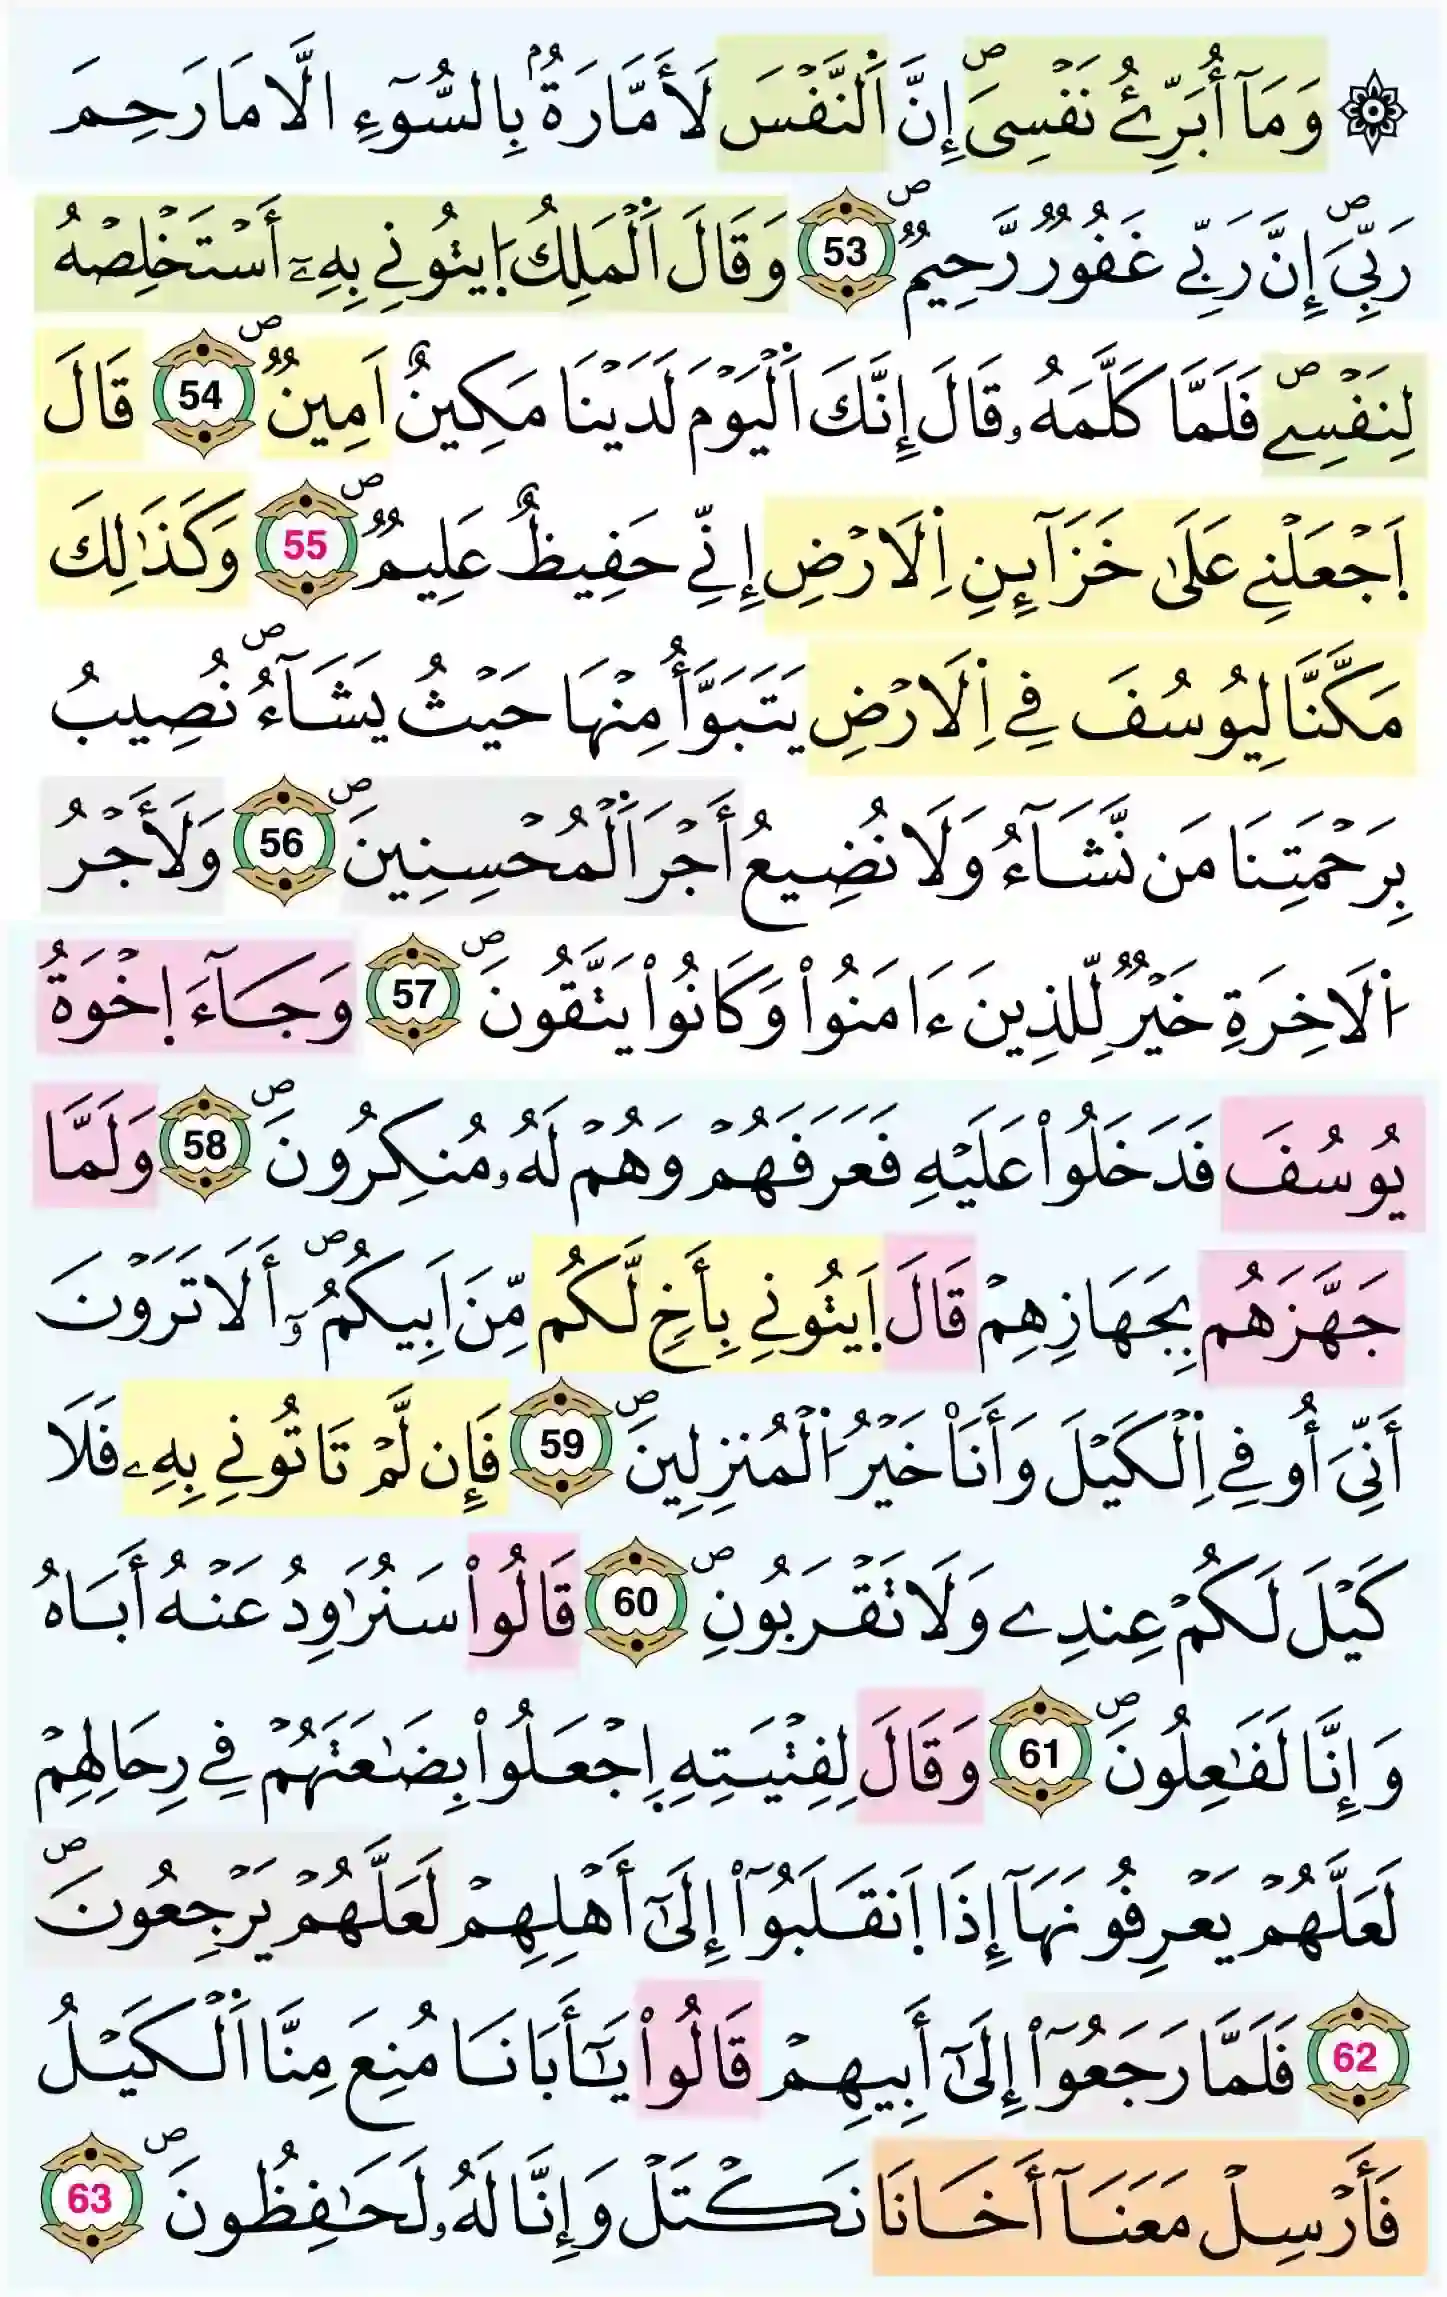 ۞ وَمَآ أُبَرِّئُ نَفْسِيَ إِنَّ اَ۬لنَّفْسَ لَأَمَّارَةُۢ بِالسُّوٓءِ الَّا مَا رَحِمَ
رَبِّيَ إِنَّ رَبِّے غَفُورٞ رَّحِيمٞ 53 وَقَالَ اَ۬لْمَلِكُ اُ۪يتُونِے بِهِۦٓ أَسْتَخْلِصْهُ
لِنَفْسِے فَلَمَّا كَلَّمَهُۥ قَالَ إِنَّكَ اَ۬لْيَوْمَ لَدَيْنَا مَكِينٌ اَمِينٞ 54 قَالَ
اَ۪جْعَلْنِے عَلَىٰ خَزَآئِنِ اِ۬لَارْضِ إِنِّے حَفِيظٌ عَلِيمٞ 55 وَكَذَٰلِكَ
مَكَّنَّا لِيُوسُفَ فِے اِ۬لَارْضِ يَتَبَوَّأُ مِنْهَا حَيْثُ يَشَآءُ نُصِيبُ
بِرَحْمَتِنَا مَن نَّشَآءُ وَلَا نُضِيعُ أَجْرَ اَ۬لْمُحْسِنِينَ 56 وَلَأَجْرُ
اُ۬لَاخِرَةِ خَيْرٞ لِّلذِينَ ءَامَنُواْ وَكَانُواْ يَتَّقُونَ 57 وَجَآءَ اِخْوَةُ
يُوسُفَ فَدَخَلُواْ عَلَيْهِ فَعَرَفَهُمْ وَهُمْ لَهُۥ مُنكِرُونَ 58 وَلَمَّا
جَهَّزَهُم بِجَهَازِهِمْ قَالَ اَ۪يتُونِے بِأَخٖ لَّكُم مِّنَ اَبِيكُمُۥٓ أَلَا تَرَوْنَ
أَنِّيَ أُوفِے اِ۬لْكَيْلَ وَأَنَا۠ خَيْرُ اُ۬لْمُنزِلِينَ 59 فَإِن لَّمْ تَاتُونِے بِهِۦ فَلَا
كَيْلَ لَكُمْ عِندِے وَلَا تَقْرَبُونِ 60 قَالُواْ سَنُرَٰوِدُ عَنْهُ أَبَاهُ
وَإِنَّا لَفَٰعِلُونَ 61 وَقَالَ لِفِتْيَتِهِ اِ۪جْعَلُواْ بِضَٰعَتَهُمْ فِے رِحَالِهِمْ
لَعَلَّهُمْ يَعْرِفُونَهَآ إِذَا اَ۪نقَلَبُوٓاْ إِلَىٰٓ أَهْلِهِمْ لَعَلَّهُمْ يَرْجِعُونَ
62 فَلَمَّا رَجَعُوٓاْ إِلَىٰٓ أَبِيهِمْ قَالُواْ يَٰٓأَبَانَا مُنِعَ مِنَّا اَ۬لْكَيْلُ
فَأَرْسِلْ مَعَنَآ أَخَانَا نَكْتَلْ وَإِنَّا لَهُۥ لَحَٰفِظُونَ 63